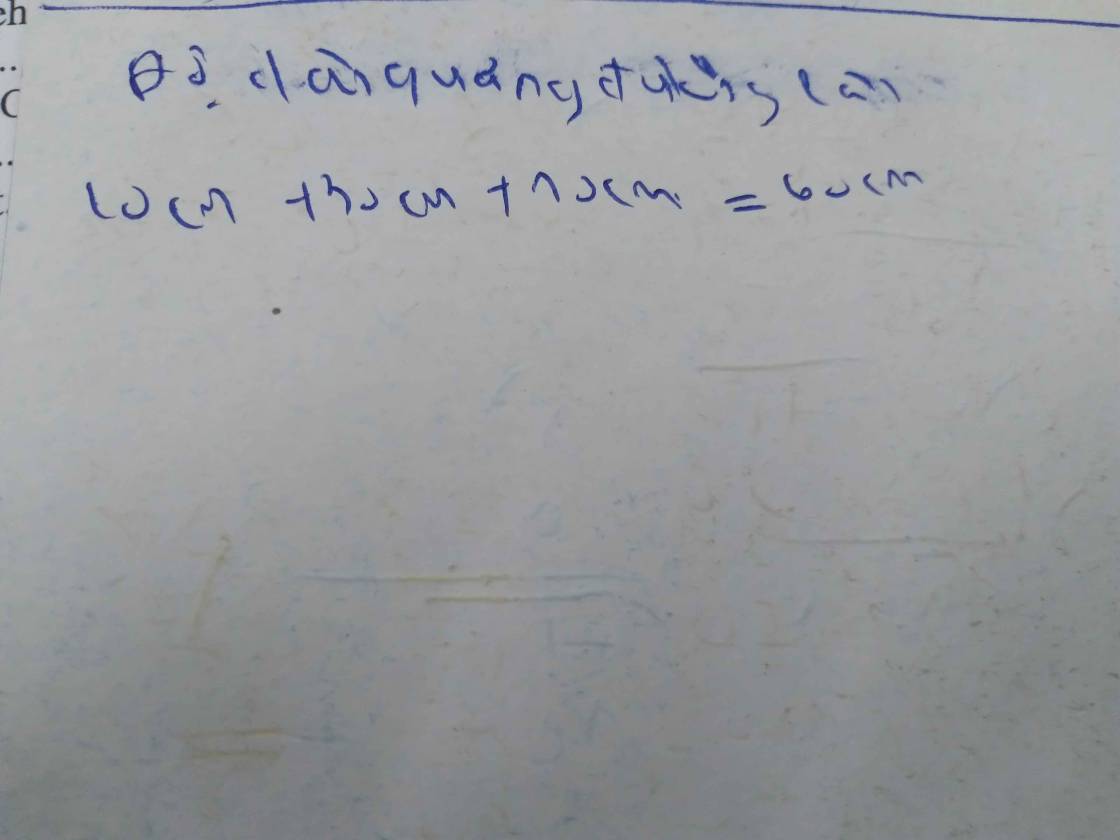 eh
..
C
..
Độ dài quảng đường càn
10cm +30cm +20cm = 60cm